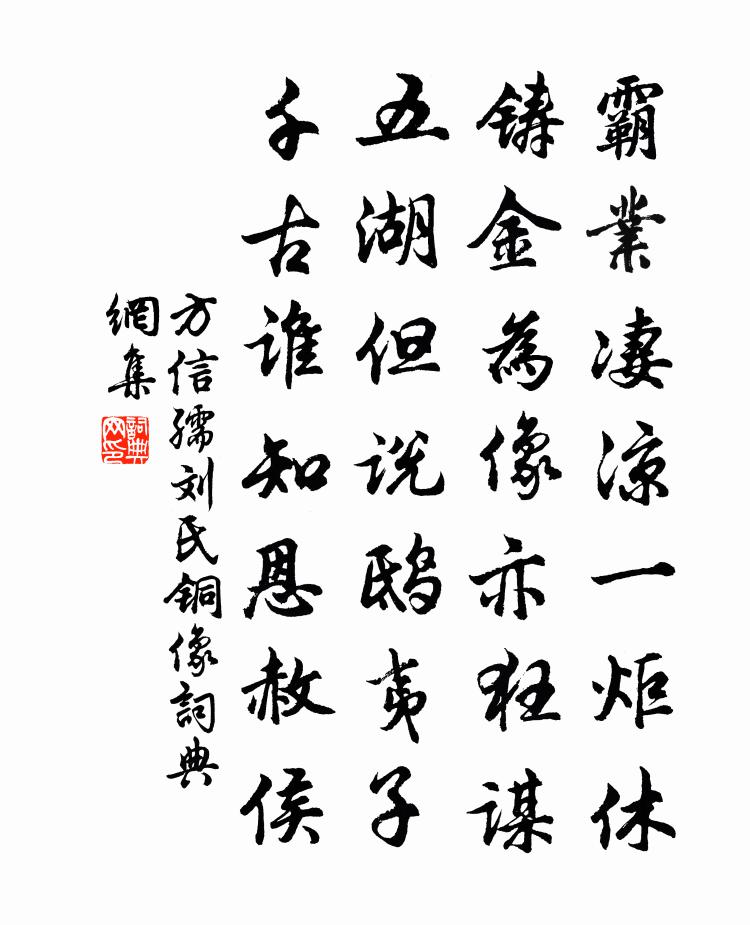 霸業凄凉一炬休
鑄金為像亦狂謀
五湖但说鸱夷子
千古谁知恩赦侯
方信孺刘氏铜像詞典
網集
詞典
网印